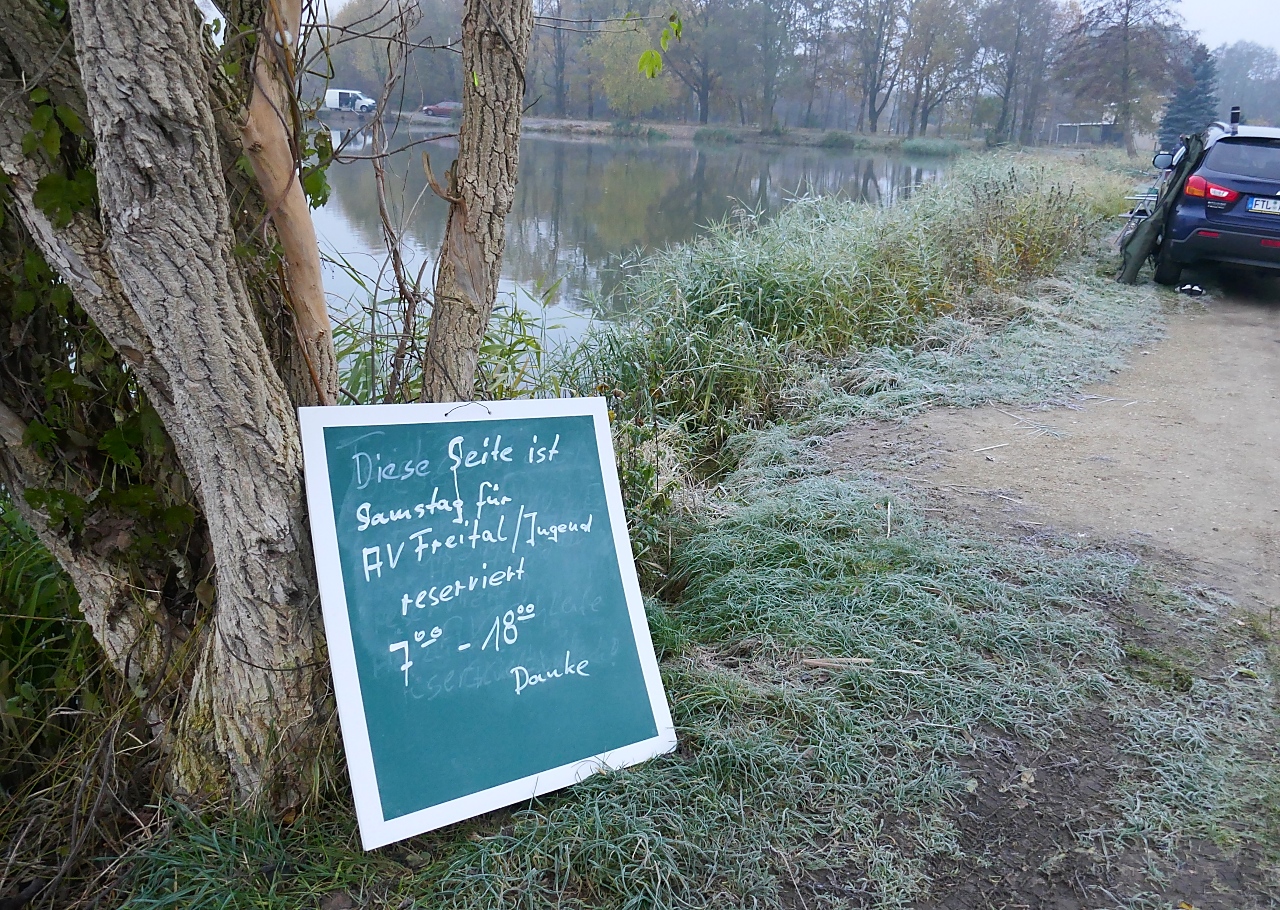 Diese Seite ist
Samstag für
AV Freital/Jugend
reserviert
7⁰⁰ - 18⁰⁰
Danke
FTL